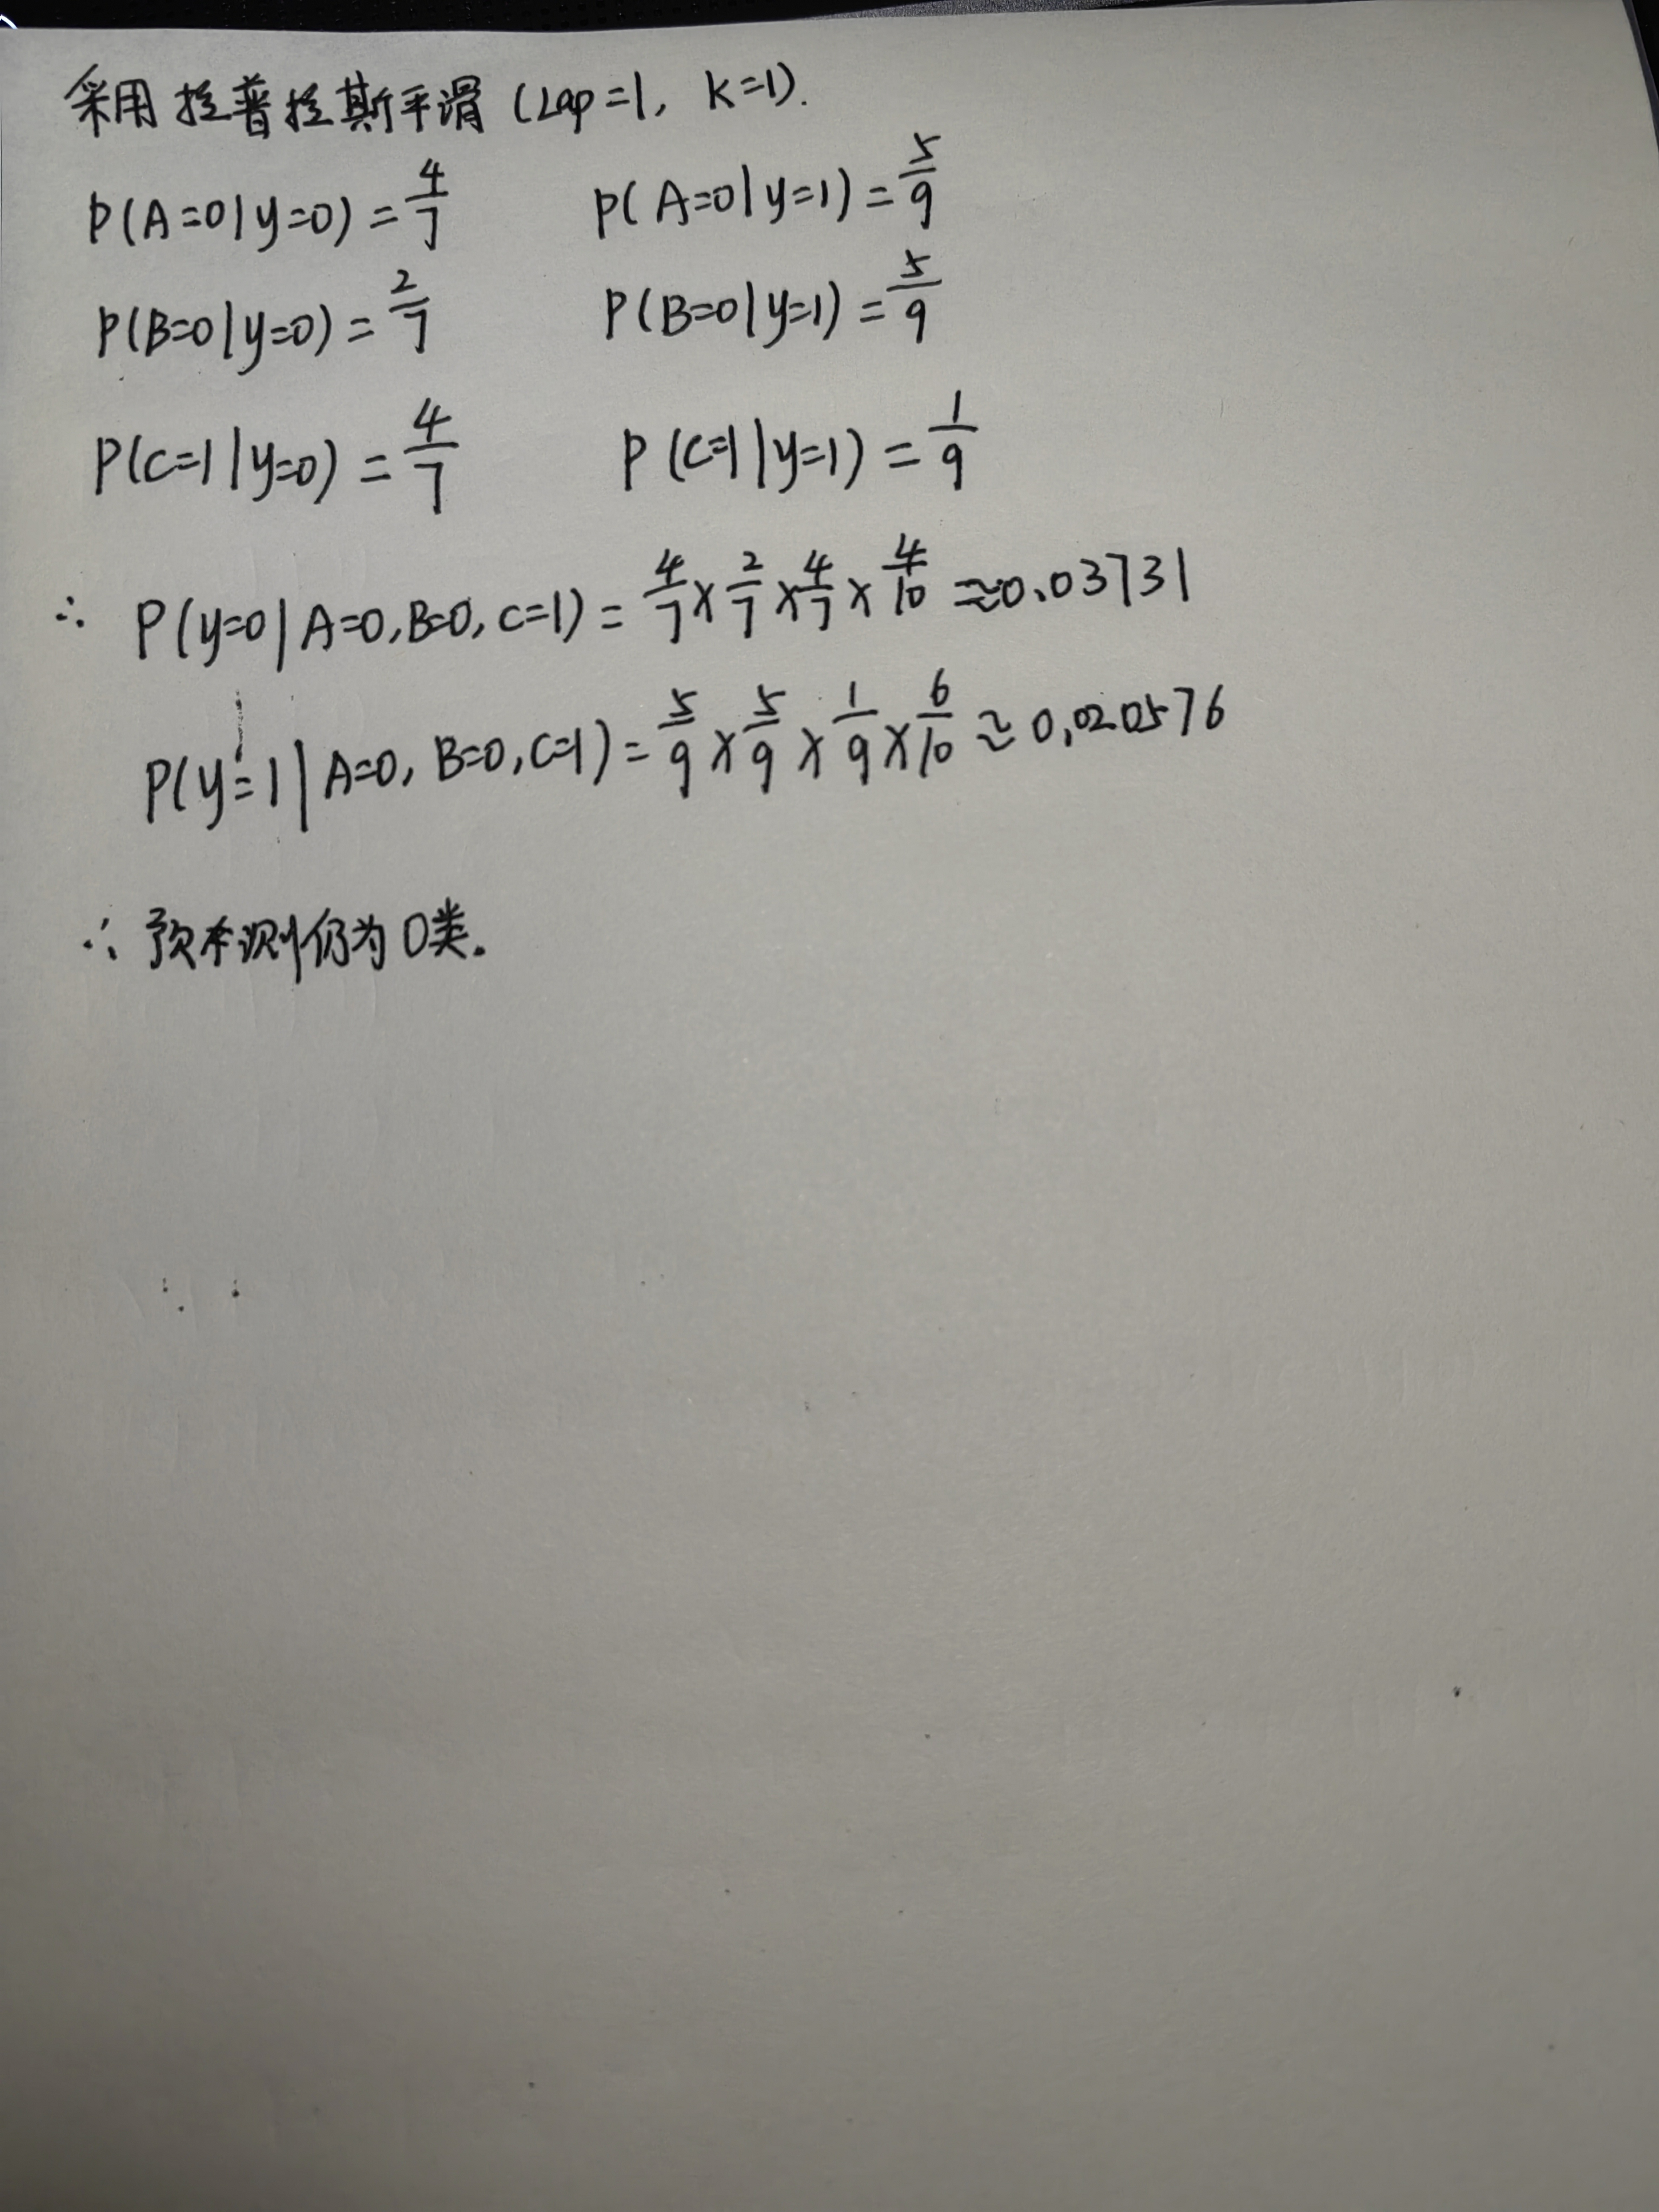 采用拉普拉斯平滑 (Lap=1, K=1).
P(A=0|y=0) = 4/7 P(A=0|y=1) = 5/9
P(B=0|y=0) = 2/7 P(B=0|y=1) = 5/9
P(C=1|y=0) = 4/7 P(C=1|y=1) = 1/9
∴ P(y=0|A=0,B=0,C=1) = 4/7 × 2/7 × 4/7 × 4/10 ≈ 0.03731
P(y=1|A=0, B=0, C=1) = 5/9 × 5/9 × 1/9 × 6/10 ≈ 0.020576
∴ 预测仍为0类.